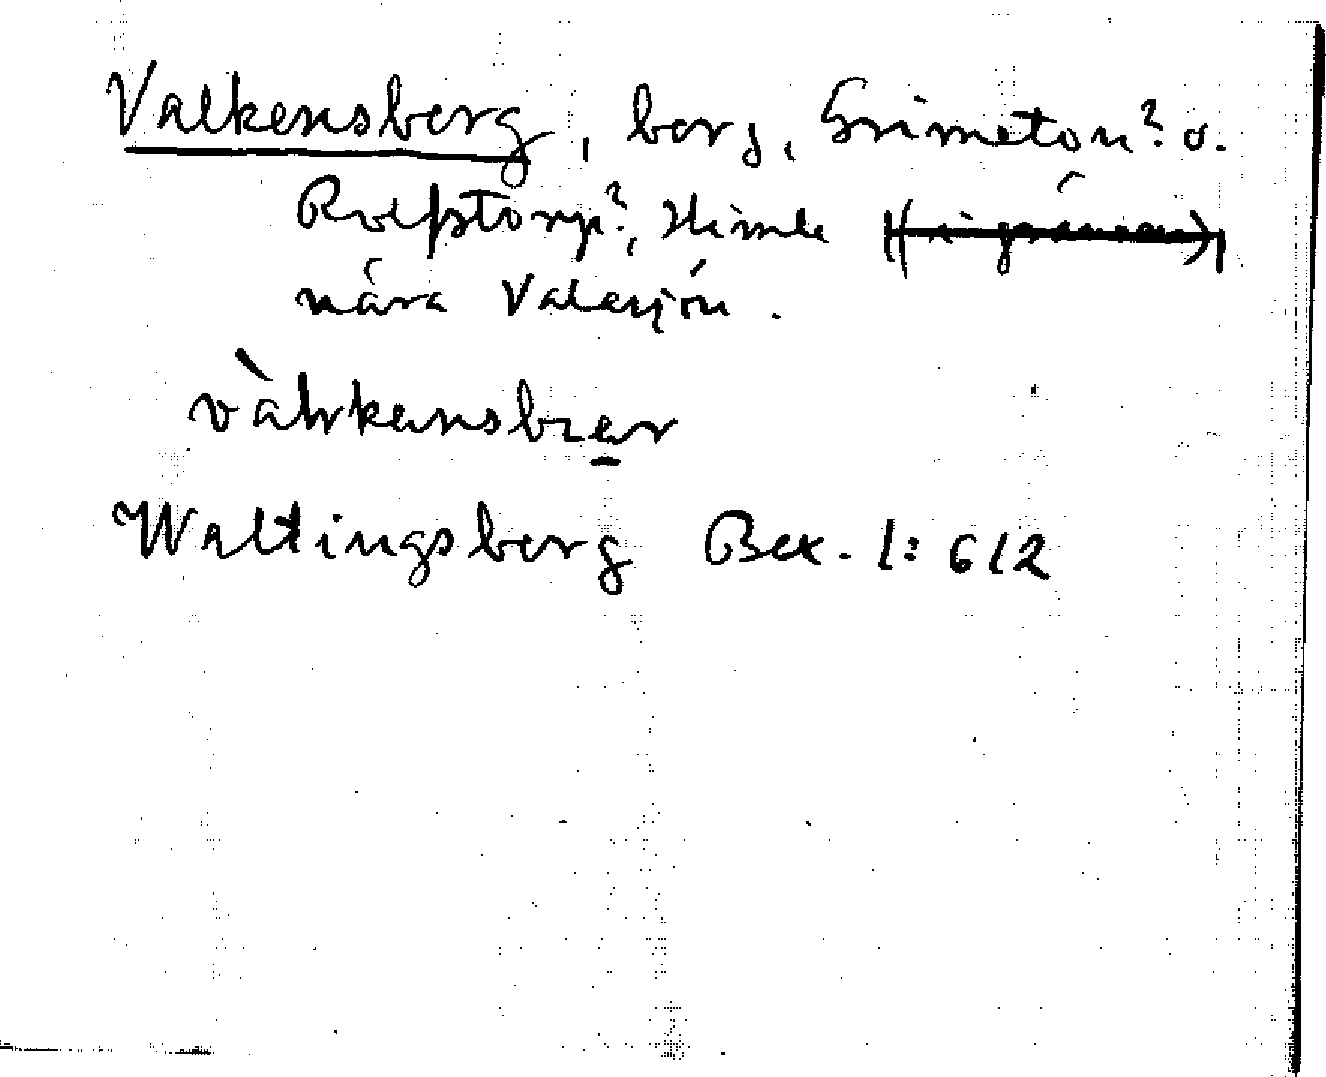 Valkensberg, berg, Grimeton? o.
Rolfstorp?, Himle
nära Valasjön.
vàlrkensbrær
Waltingsberg Bex. 1: 612